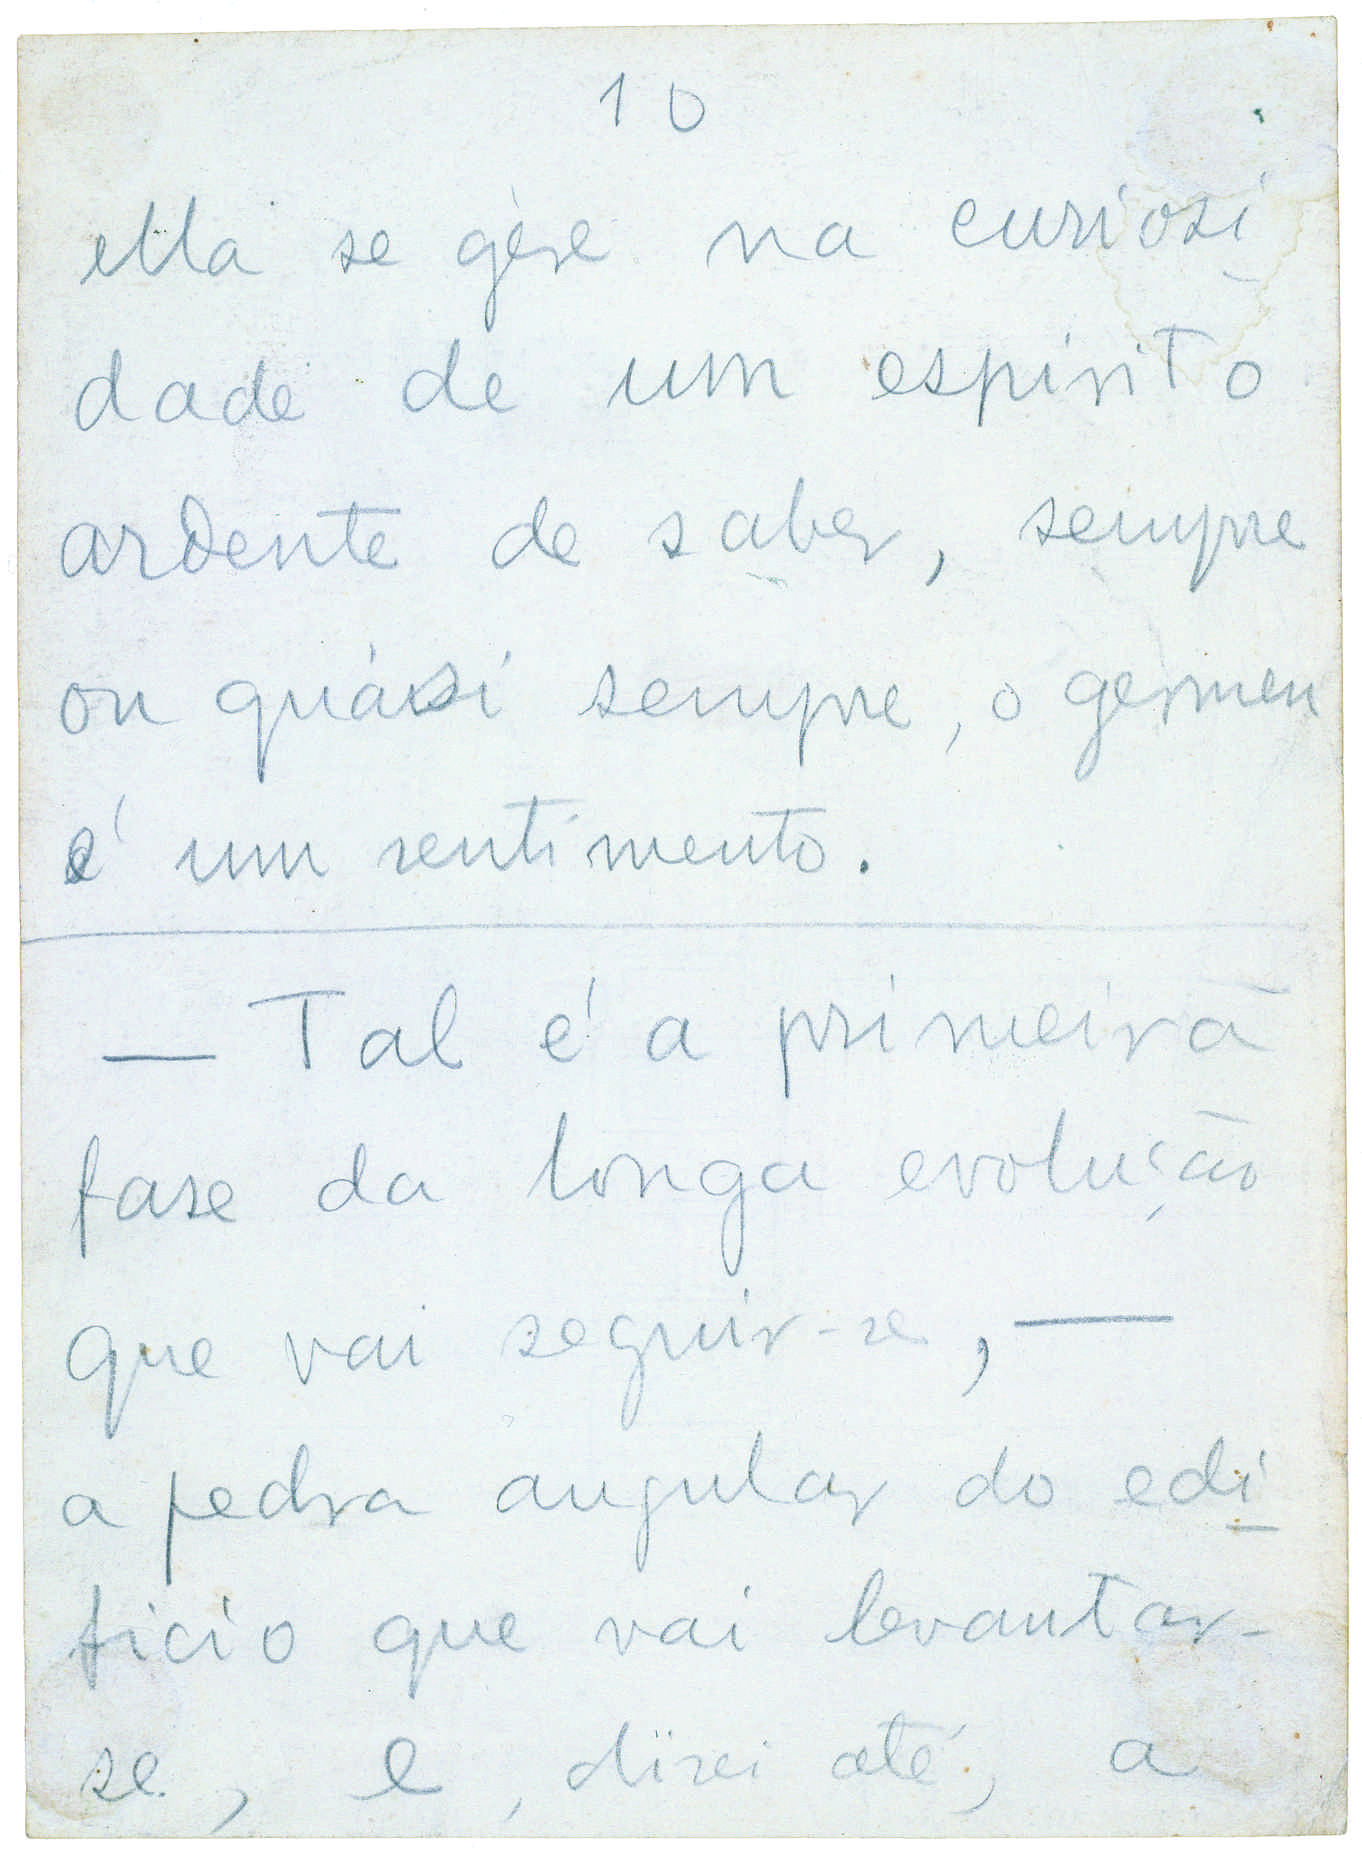 10
ella se gére na curiosi
dade de um espirito
ardente de saber, sempre
ou quási sempre, o gérmen
é um sentimento.
— Tal é a primeira
fase da longa evolução
que vai seguir-se, —
a pedra angular do edi
ficio que vai levantar-
se, e, direi até, a